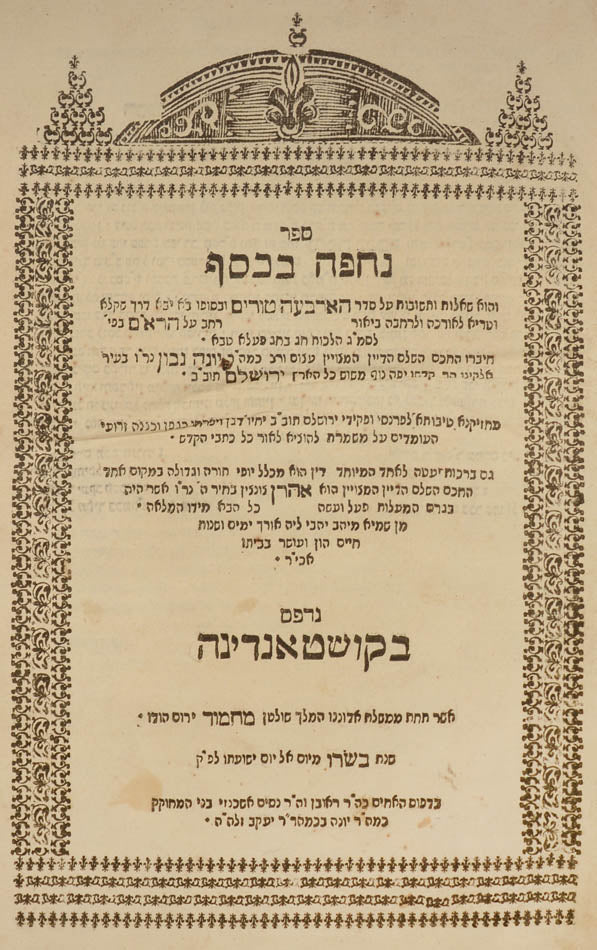 ספר
נחפה בכסף
והוא שאלות ותשובות על סדר הארבעה טורים ובסופו בא יבא דרך שקלא
וטריא לאורכה ולרחבה ביאור רחב על הרא"ם בפי'
לסמ"ג הלכות חג בחג פעלא טבא •
חיברו החכם השלם הדיין המצויין ענוותן ורב כמה"ר יונה נבון נר"ו בעיר
אלקינו הר קדשו יפה נוף משוש כל הארץ ירושלם תוב"ב •
מחזיקנא טיבותא לפרנסי ופקידי ירושלם תוב"ב
העומדים על משמרת להוציא לאור כל כתבי הקדש •
גם ברכות יעטה לאחד המיוחד דין הוא מכלל יופי תורה וגדולה במקום אחד
החכם השלם הדיין המצויין הוא אהרן נר"ו אשר היה
בגרם המעלות פעל ועשה כל הבא מידו המלאה •
מן שמיא מיהב יהבי ליה אורך ימים ושנות
חיים הון ועושר בביתו
אכי"ר •
נדפס
בקושטאנדינה
אשר תחת ממשלת אדוננו המלך שולטן מחמוד ירום הודו •
שנת בשרו מיום אל יום ישועתו לפ"ק
בדפוס האחים כה"ר ראובן וה"ר נסים אשכנזי בני המחוקק
כמה"ר יונה בכמהר"ר יעקב זלה"ה •